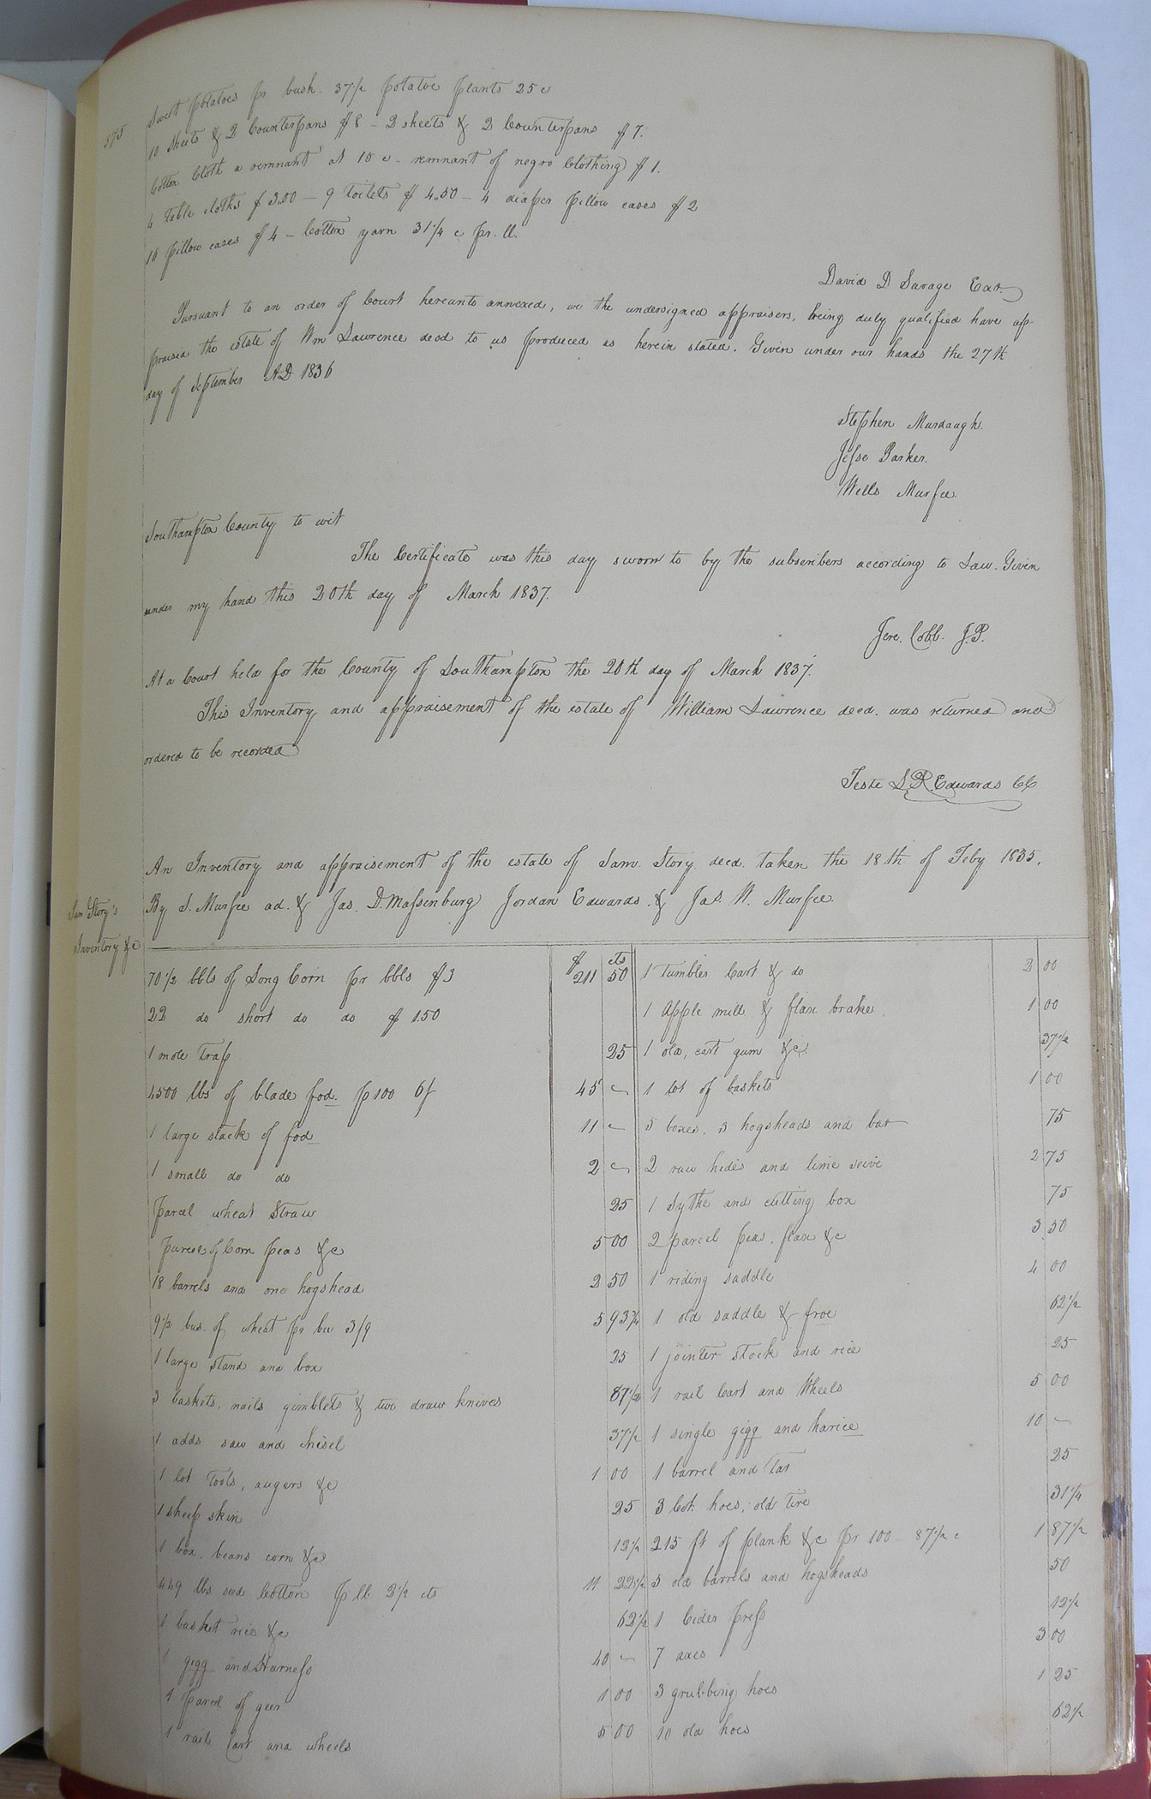 575
Sweet potatoes pr bush. 37½ potatoe plants 25 c
10 Sheets & 2 Counterpans $8 – 2 sheets & 2 Counterpans $7.
Cotton Cloth a remnant at 10 c – remnant of negro Clothing $1.
4 table cloths $3.00 – 9 toilets $4.50 – 4 diaper pillow cases $2
16 pillow cases $4 – Cotton yarn 31¼ c pr. ll.
David D Savage Exr.
Pursuant to an order of Court hereunto annexed, we the undersigned appraisers, being duly qualified have ap-
praised the estate of Wm Lawrence decd to us produced as herein stated. Given under our hands the 27th
day of September AD 1836
Stephen Murdaugh.
Jesse Barker.
Wells Murfee
Southampton County to wit
The Certificate was this day sworn to by the subscribers according to Law. Given
under my hand this 20th day of March 1837.
Jere. Cobb. J.P.
At a Court held for the County of Southampton the 20th day of March 1837.
This Inventory and appraisement of the estate of William Lawrence decd. was returned and
ordered to be recorded
Teste L R Edwards CC
An Inventory and appraisement of the estate of Sam. Story decd. taken the 18th of Feby 1835.
By S. Murfee ad. & Jas. D. Massenburg Jordan Edwards. & Jas. W. Murfee
Sam Story's
Inventory &c
$ cts
70½ bbls of Long Corn pr bbls $3 211 50
22 do short do do $1.50
1 mole trap 25
4500 lbs of blade fod. p 100 6/ 45 "
1 large stack of fod 11 "
1 small do do 2 "
Parcel wheat Straw 25
Parcel of Corn peas &c 5 00
18 barrels and one hogshead 2 50
9½ bus. of wheat pr bu 3/9 5 93¾
1 large stand and box 25
3 baskets, nails gimblets & two draw knives 87½
1 adds saw and chisel 37½
1 lot Tools, augers &c 1 00
1 sheep skin 25
1 box, beans corn &c 12½
449 lbs seed Cotton p ll 2½ cts 11 22½
1 basket rice &c 62½
1 gigg and Harness 40 "
1 parcel of geer 1 00
1 rail Cart and wheels 5 00
1 Tumbler Cart & do 2 00
1 Apple mill & flax brake 1 00
1 old, cart gum &c 37½
1 lot of baskets 1 00
5 boxes, 3 hogsheads and bar 75
2 raw hides and lime seive 2 75
1 Sythe and cutting box 75
2 parcel peas, flax &c 3 50
1 riding saddle 4 00
1 old saddle & froe 62½
1 jointer stock and rice 25
1 rail Cart and Wheels 5 00
1 single gigg and harice 10 "
1 barrel and Tar 25
3 Cot. hoes, old Tire 31¼
215 ft of plank &c pr 100 – 87½ c 1 87½
5 old barrels and hogsheads 50
1 Cider press 12½
7 axes 3 00
3 grubbing hoes 1 25
10 old hoes 62½